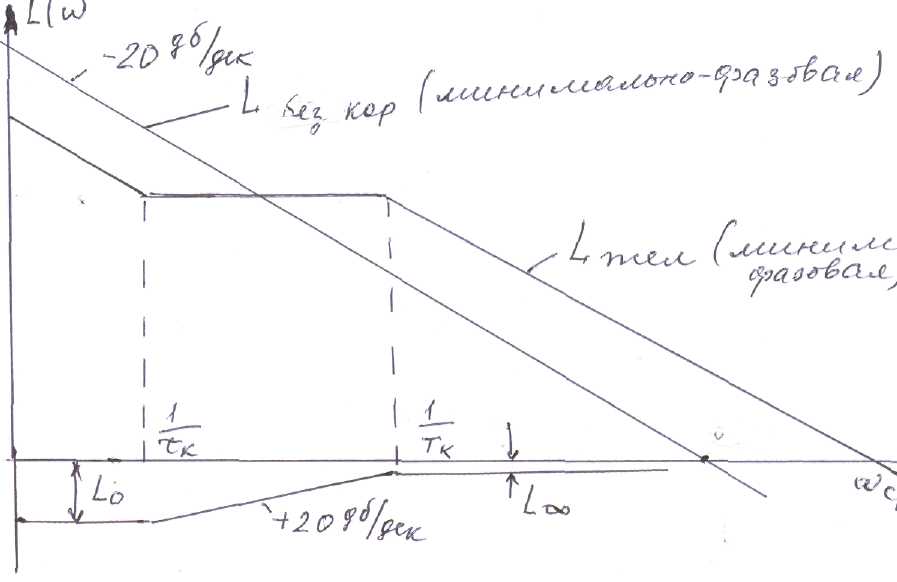 L(ω)
-20 дб/дек
L без кор (минимально-фазовая)
L жел (миним
фазовая,
1/τк
1/Tк
L0
L∞
+20 дб/дек
ωс